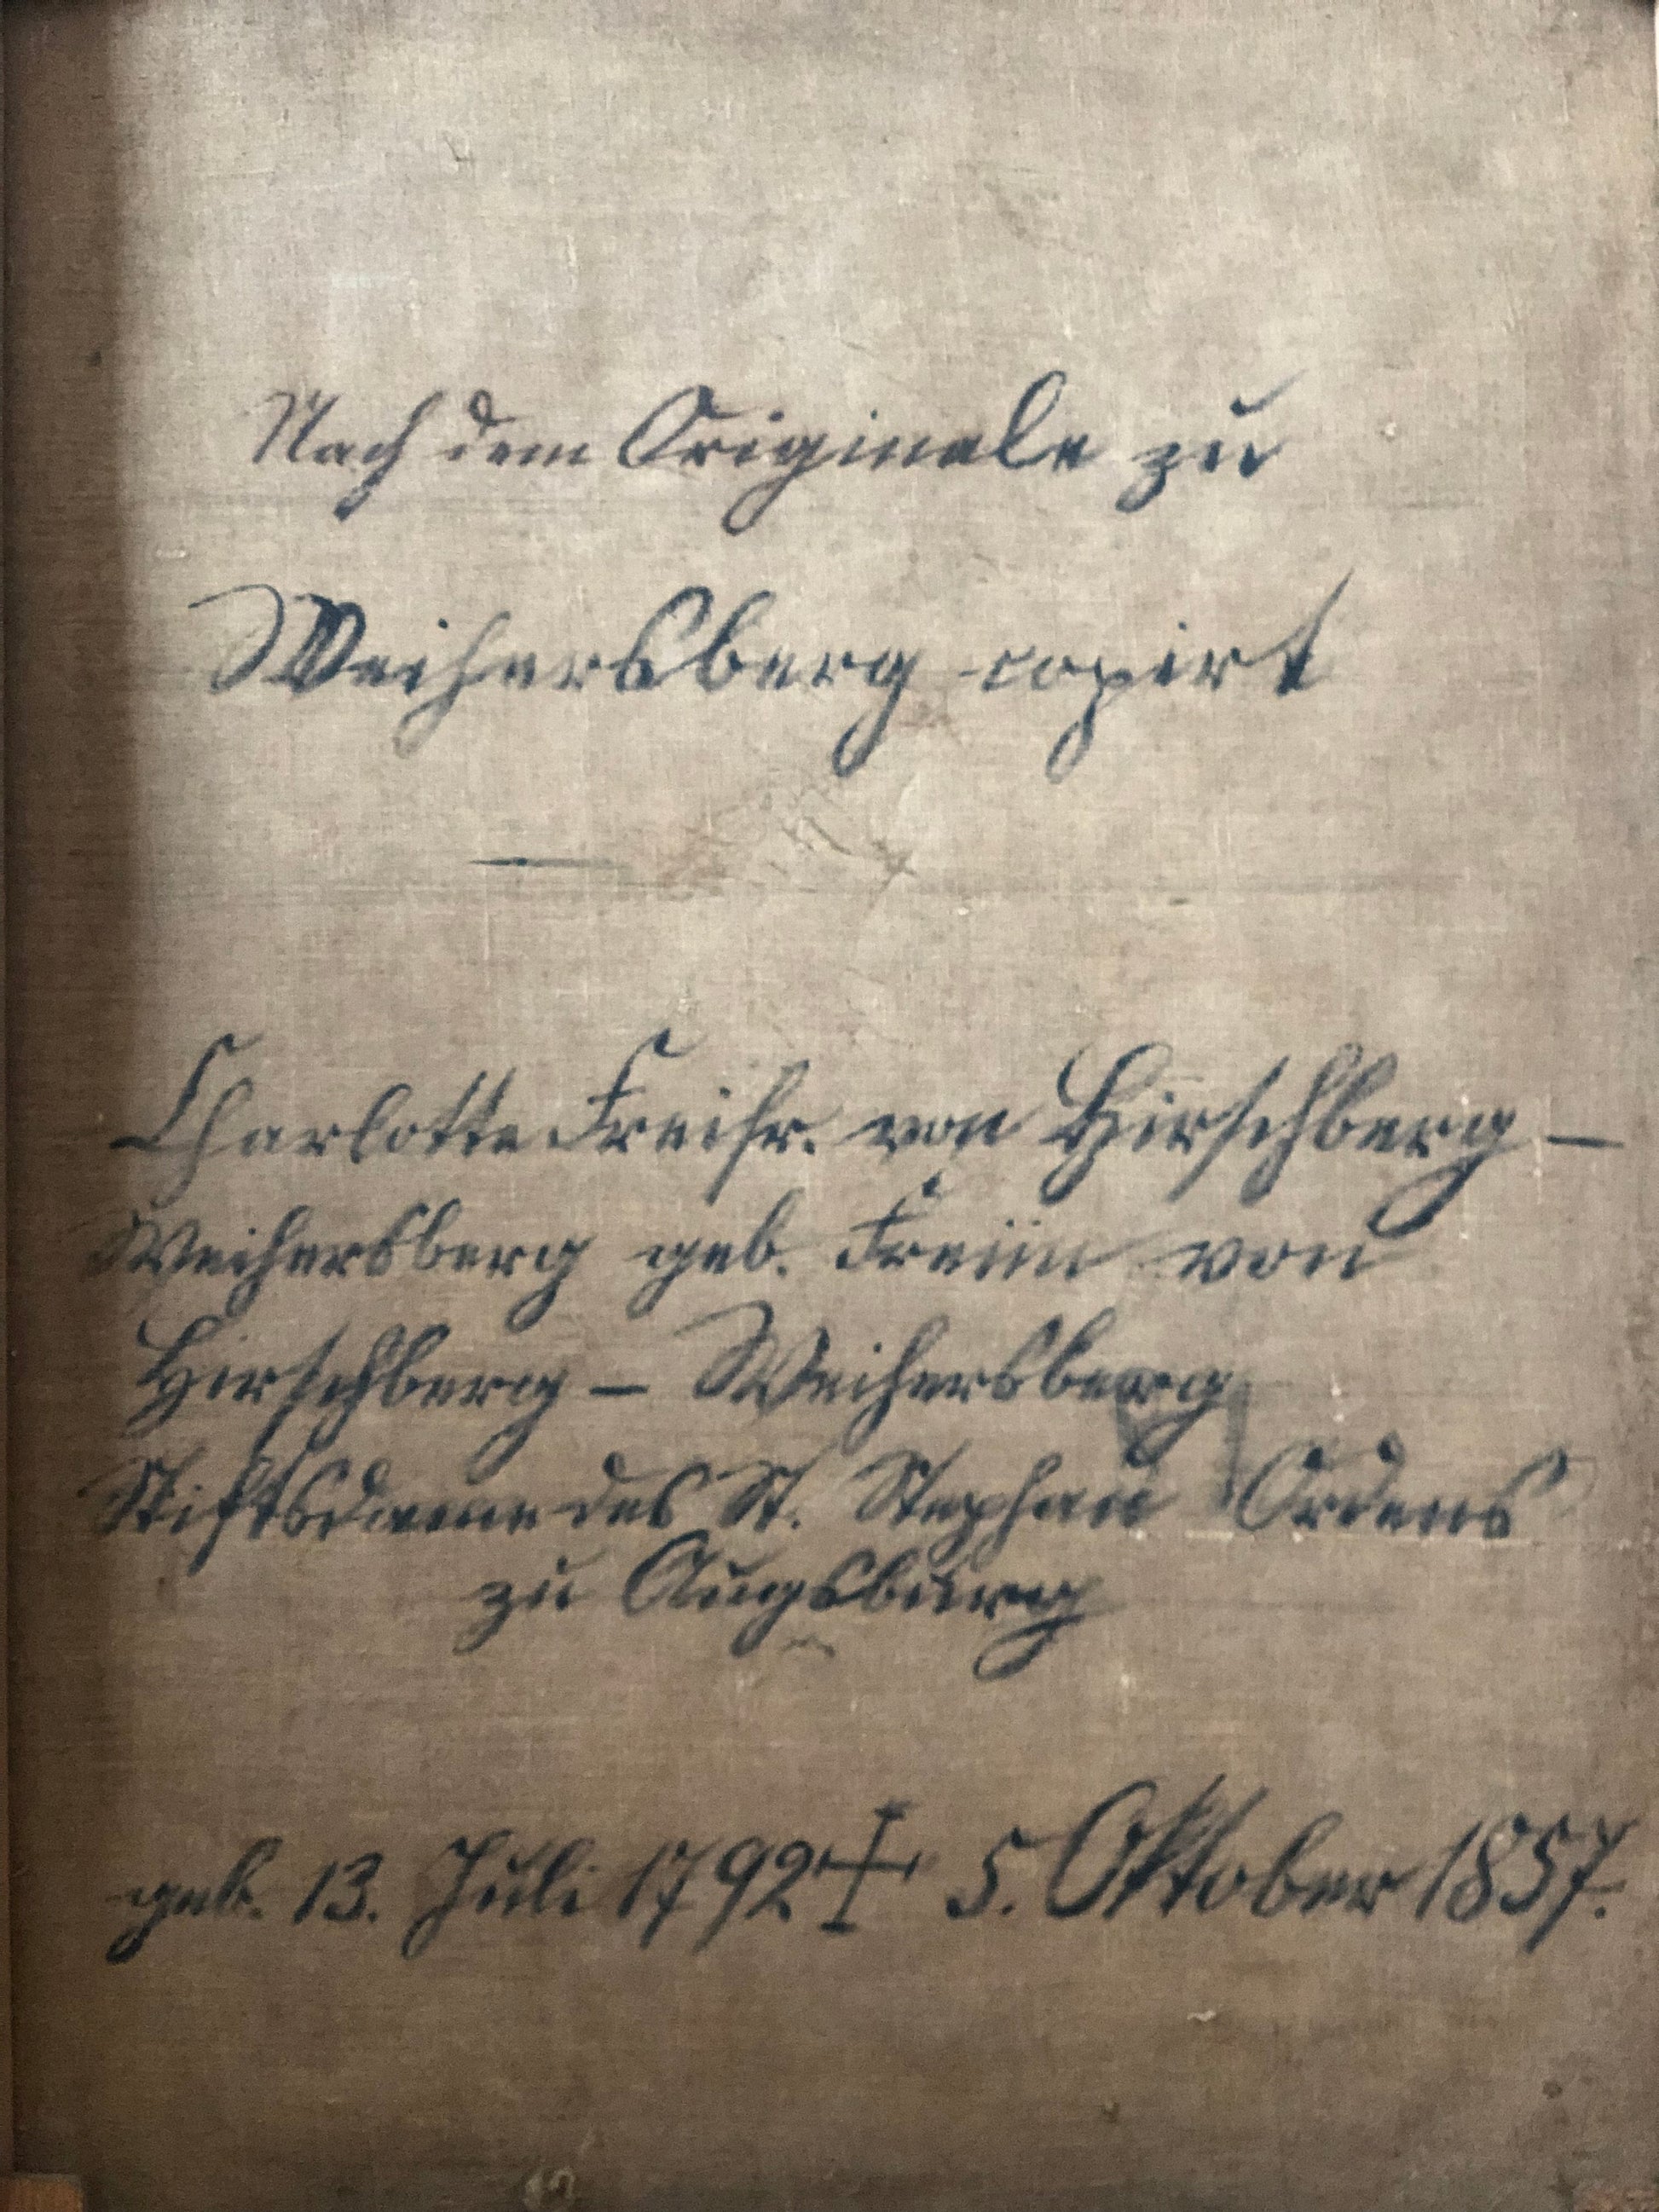 Nach dem Originale zu
Weihersberg copirt
—
Charlotte Freifr. von Hirschberg –
Weihersberg geb. Freiin von
Hirschberg – Weihersberg
Stiftsdame des St. Stephan Ordens
zu Augsburg
geb. 13. Juli 1792 † 5. Oktober 1857.